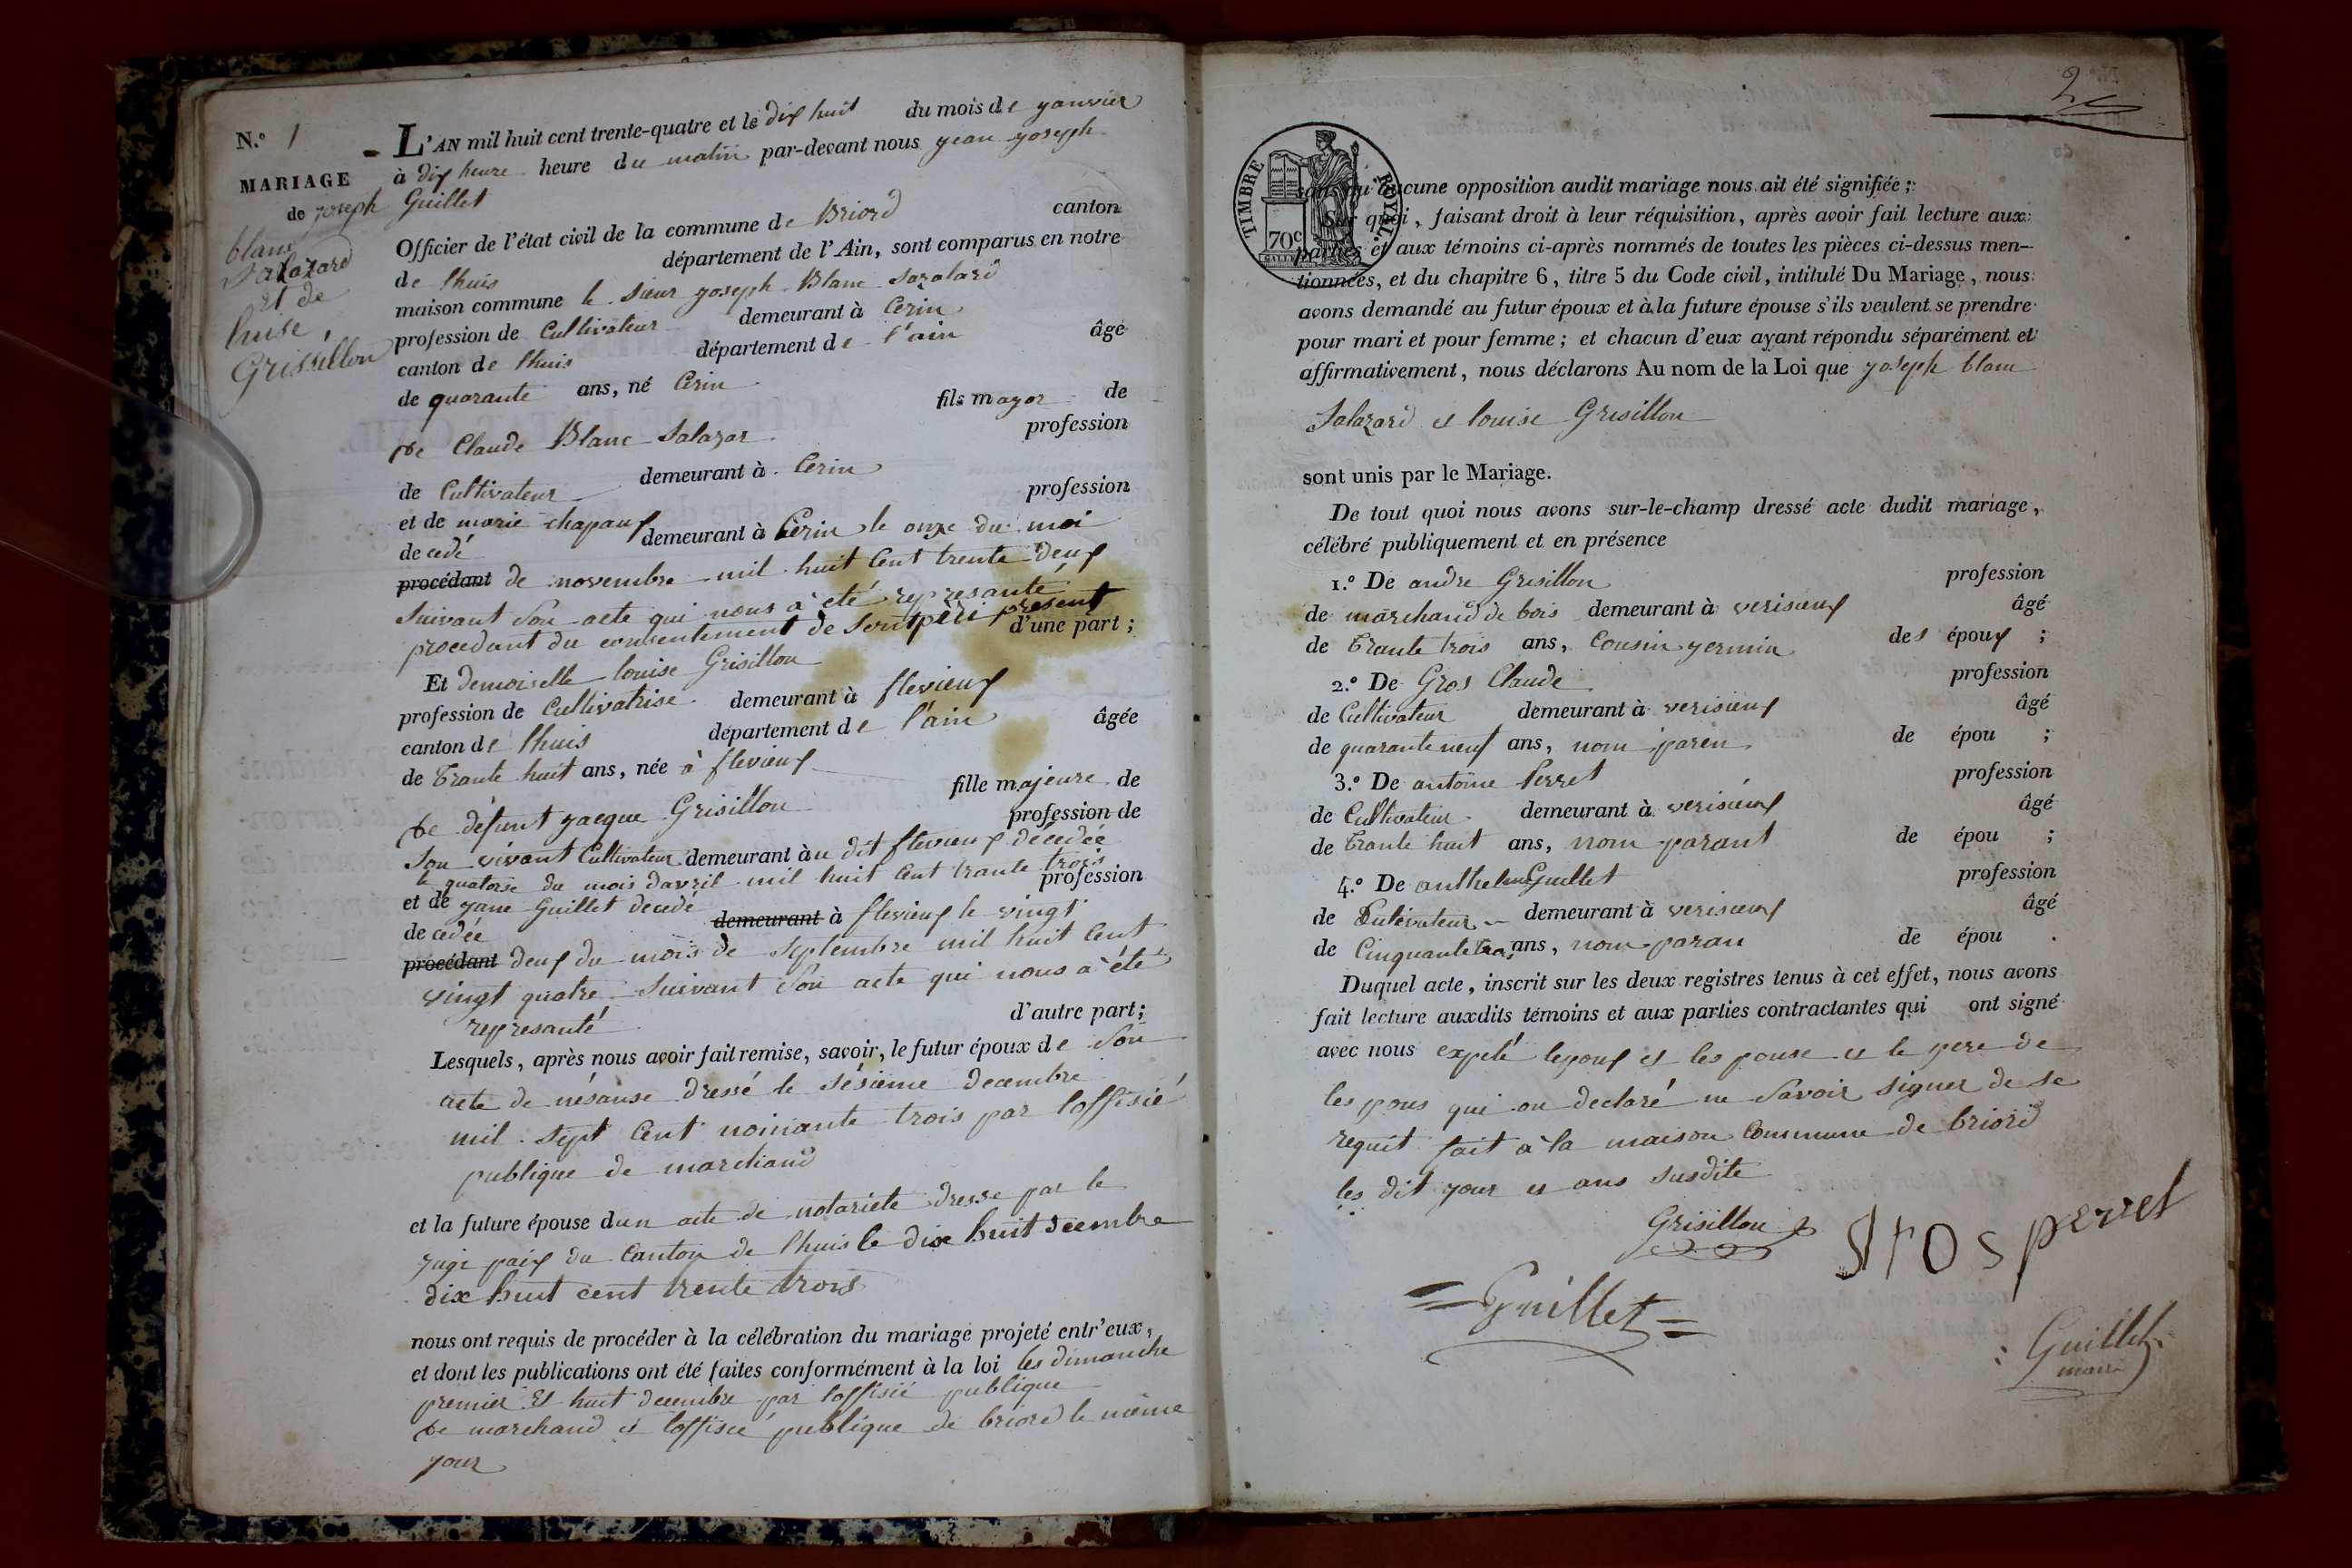 N.º 1
MARIAGE
de joseph
blanc
Salazard
et de
luise
Grisillon
L'AN mil huit cent trente-quatre et le dix huit du mois de janvier
à dix heure heure du matin par-devant nous jean joseph
Guillet
Officier de l'état civil de la commune de Briord canton
de lhuis département de l'Ain, sont comparus en notre
maison commune le sieur joseph Blanc Sazalard
profession de Cultivateur demeurant à Cerin
canton de lhuis département de l'ain âgé
de quarante ans, né Cerin
fils major de
de Claude Blanc Salazar profession
de Cultivateur demeurant à Cerin
et de marie chapau profession
de cedé demeurant à Cèrin le onze du moi
procédant de novembre mil huit Cent trente deux
suivant son acte qui nous a été represanté
procedant du consentement de son pèri present
d'une part ;
Et demoiselle louise Grisillon
profession de Cultivatrise demeurant à flevieux
canton de lhuis département de l'ain âgée
de trante huit ans, née à flevieux
fille majeure de
de défunt jacque Grisillon profession de
son vivant Cultivateur demeurant àu dit flevieux décédée
le quatorse du mois davril mil huit Cent trante trois
et de jane Guillet decedé profession
de cedée demeurant à flevieux le vingt
procédant deux du mois de septembre mil huit Cent
vingt quatre suivant son acte qui nous a été
represanté d'autre part ;
Lesquels, après nous avoir fait remise, savoir, le futur époux de son
acte de nésanse dressé le sésieme decembre
mil sept Cent noinante trois par loffisié
publique de marchand
et la future épouse dun acte de notariete dresse par le
juge paix du Canton de lhuis le dix huit decembre
dix huit cent trente trois
nous ont requis de procéder à la célébration du mariage projeté entr'eux,
et dont les publications ont été faites conformément à la loi les dimanche
premier Et huit decembre par loffisié publique
de marchand et loffisié publique de briord le même
jour
2
TIMBRE ROYAL
70c
sans qu'aucune opposition audit mariage nous ait été signifiée ;
Sur quoi, faisant droit à leur réquisition, après avoir fait lecture aux
parties et aux témoins ci-après nommés de toutes les pièces ci-dessus men-
tionnées, et du chapitre 6, titre 5 du Code civil, intitulé Du Mariage, nous
avons demandé au futur époux et à la future épouse s'ils veulent se prendre
pour mari et pour femme ; et chacun d'eux ayant répondu séparément et
affirmativement, nous déclarons Au nom de la Loi que joseph blanc
Salazard et louise Grisillon
sont unis par le Mariage.
De tout quoi nous avons sur-le-champ dressé acte dudit mariage,
célébré publiquement et en présence
1.º De andre Grisillon profession
de marchand de bois demeurant à verisieux âgé
de trante trois ans, Cousin jermin des époux ;
2.º De Gros Claude profession
de Cultivateur demeurant à verisieux âgé
de quarante neuf ans, nom paren de épou ;
3.º De antoine Perret profession
de Cultivateur demeurant à verisieux âgé
de trante huit ans, nom parant de épou ;
4.º De anthelme Guillet profession
de Cultivateur demeurant à verisieux âgé
de Cinquante troi ans, nom paran de épou .
Duquel acte, inscrit sur les deux registres tenus à cet effet, nous avons
fait lecture auxdits témoins et aux parties contractantes qui ont signé
avec nous expeté lepoux et les pouse et le pere de
les pous qui on declaré ne savoir signer de se
requit fait à la maison Commune de briord
les dit jour et ans susdite
Grisillon
gros perret
Guillet
Guillet
maire